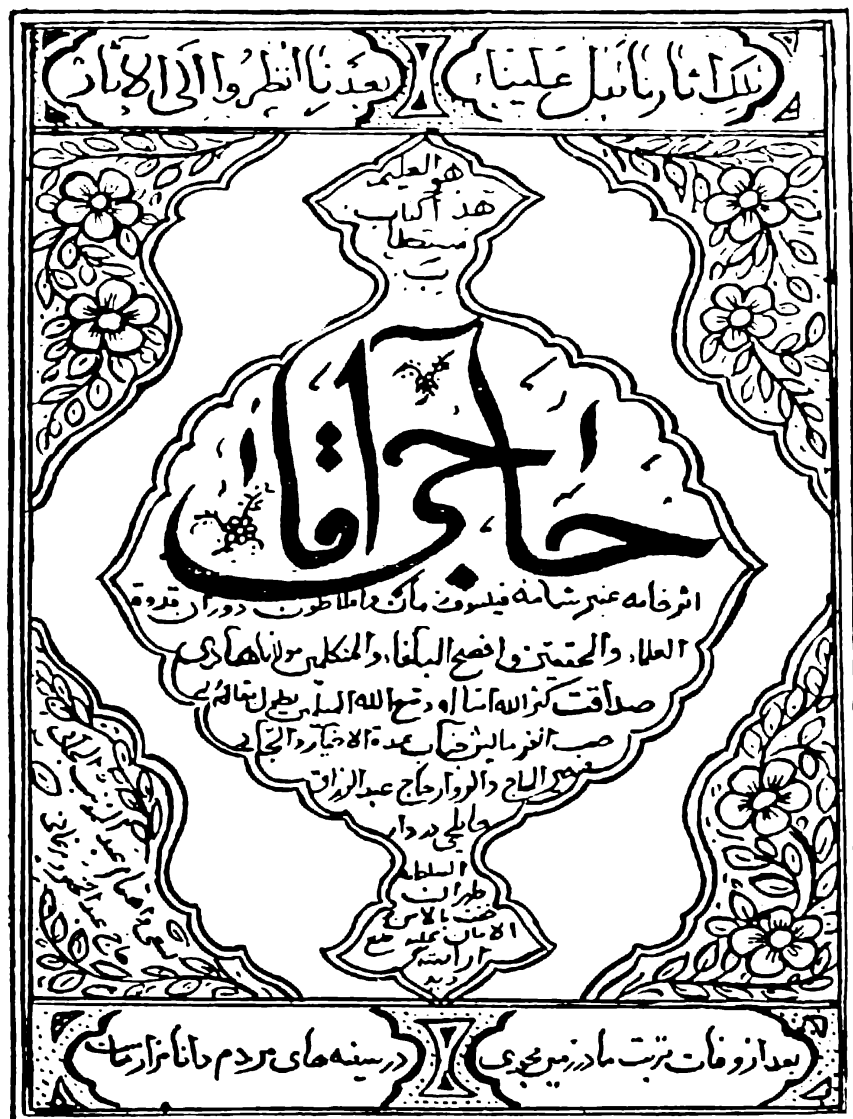 تلك آثارنا تدل علينا
بعدنا انظروا الی الآثار
هو العلیم
هذا کتاب
مستطا
ب
حاجی آقا
اثر خامه عنبر شمامه فیلسوف زمان و افلاطون دوران قدوة
العلماء والمحققین و افصح البلغاء والمتکلمین مولانا هادی
صداقت کثر الله امثاله و متع الله المسلمین بطول بقائه
حسب الفرمایش جناب عمدة الاخیار والحجاج
الحاج والزوار حاج عبدالرزاق
دار
السلطنه
طهران
الامان
بعد از وفات تربت ما در زمین مجوی
در سینه های مردم دانا مزار ماست